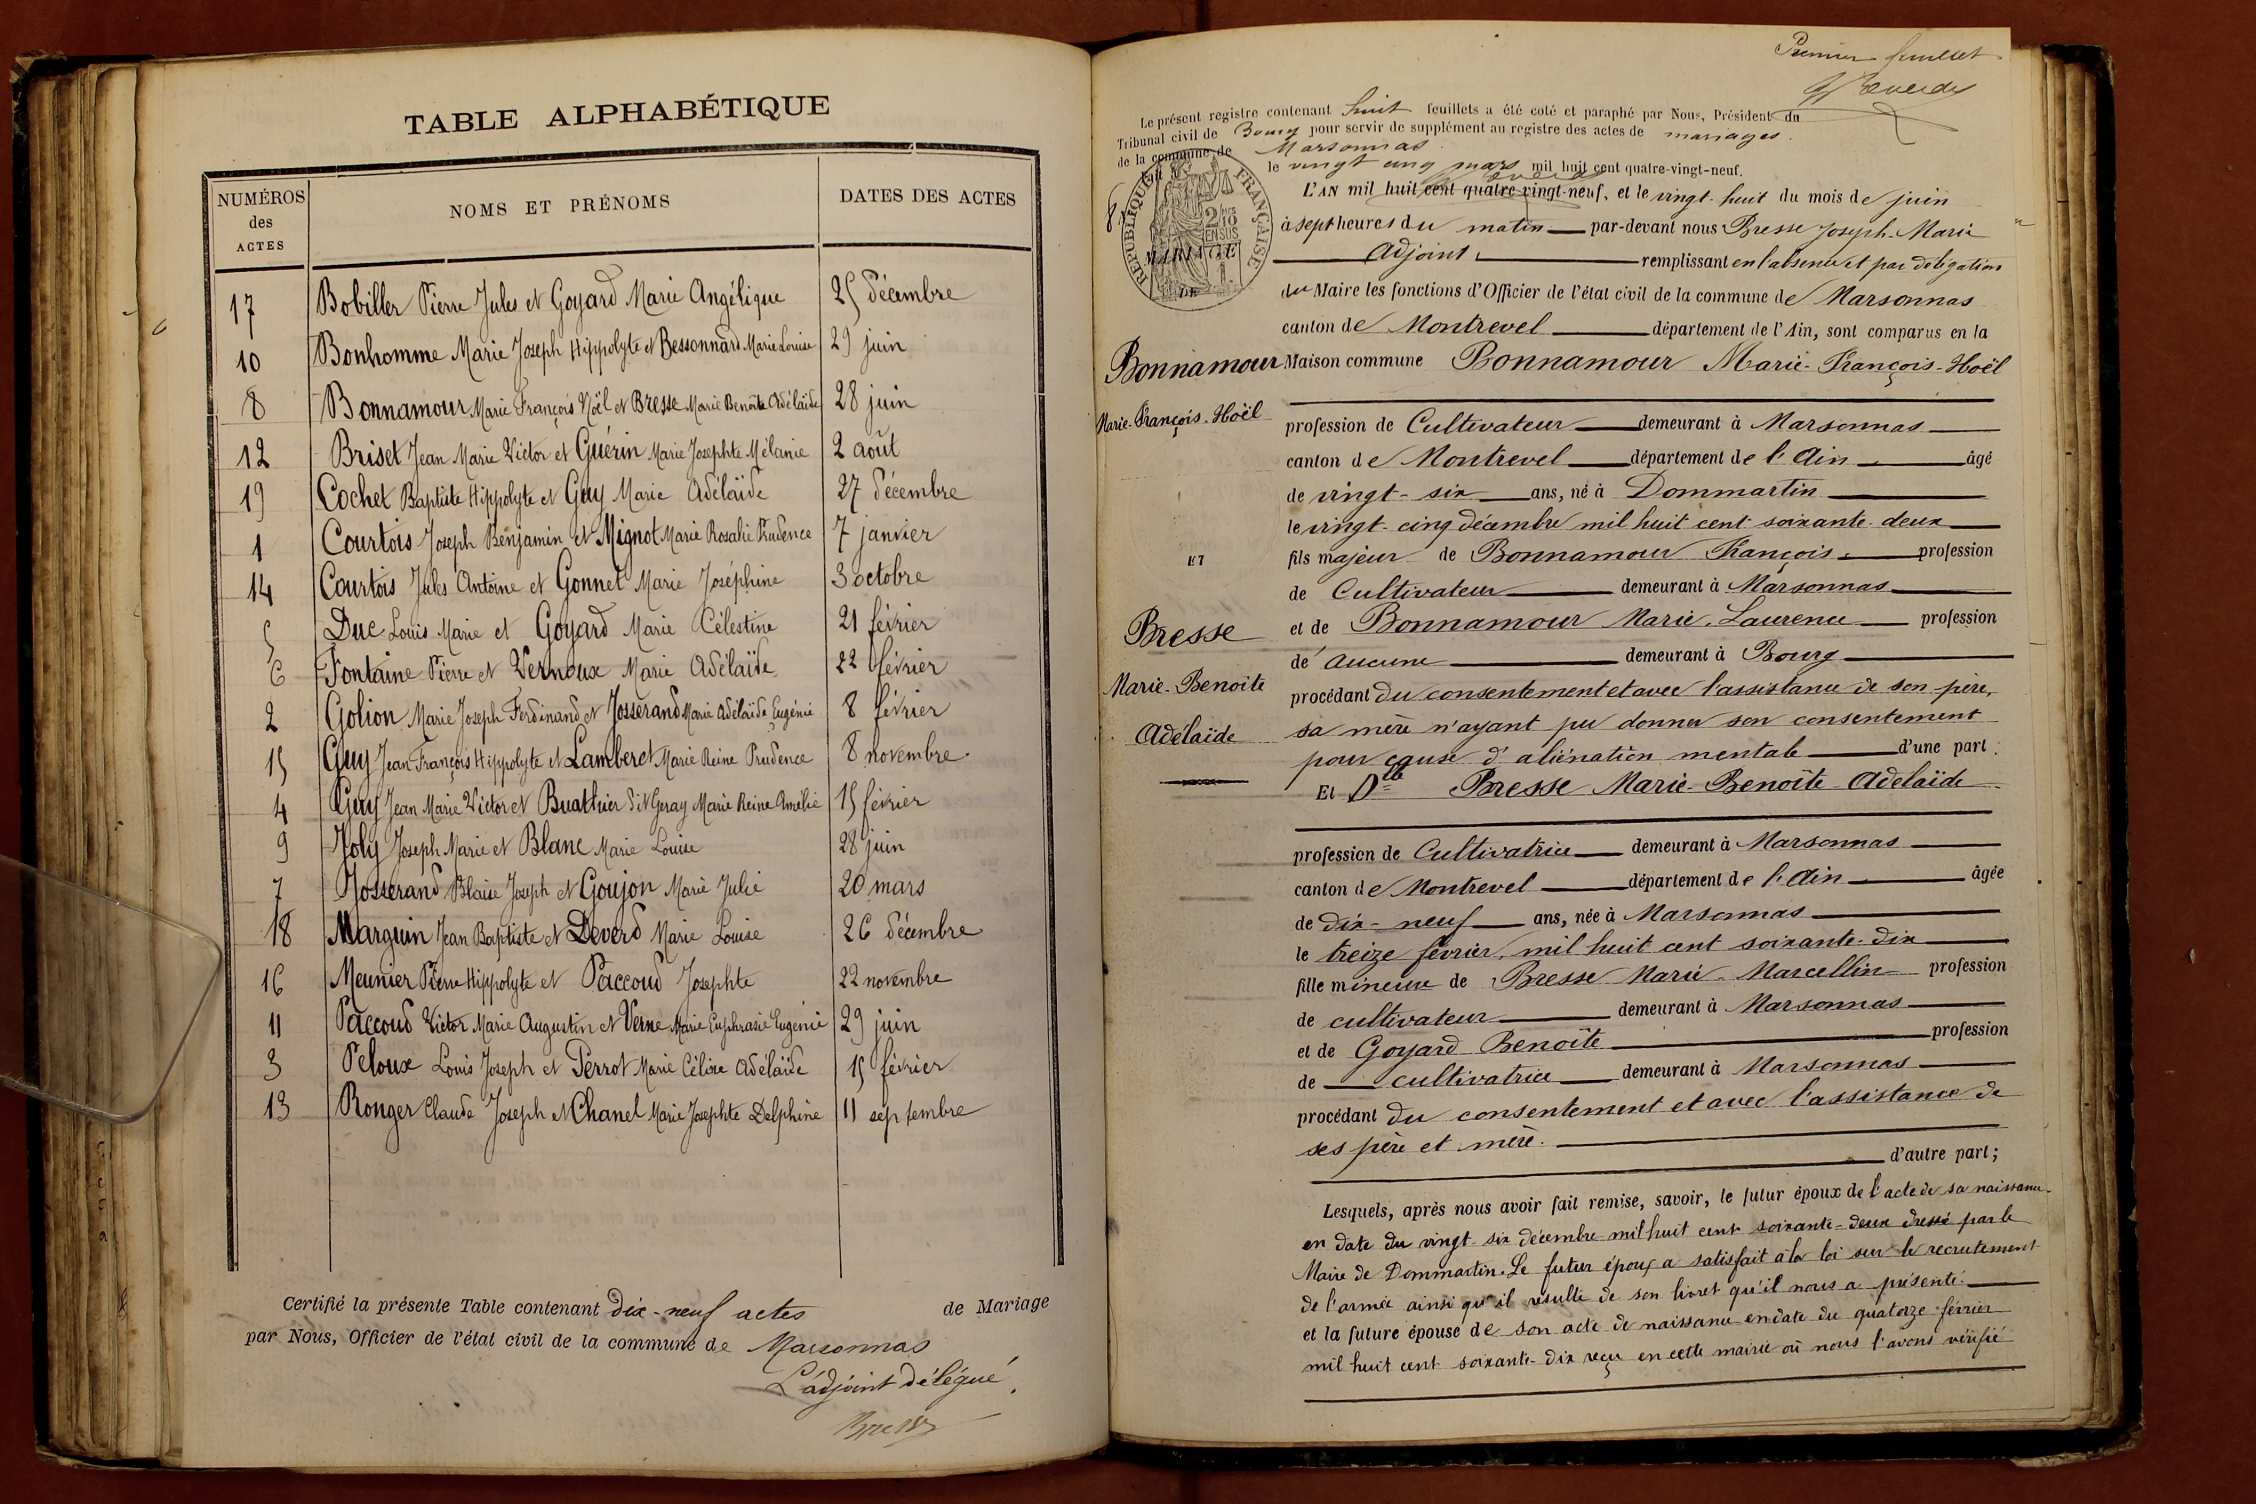 TABLE ALPHABÉTIQUE
NUMÉROS des ACTES NOMS ET PRÉNOMS DATES DES ACTES
17 Bobiller Pierre Jules et Goyard Marie Angélique 25 décembre
10 Bonhomme Marie Joseph Hippolyte et Bessonnard Marie Louise 29 juin
8 Bonnamour Marie François Noël et Bresse Marie Benoîte Adélaïde 28 juin
12 Briset Jean Marie Victor et Guérin Marie Josephte Mélanie 2 août
19 Cochet Baptiste Hippolyte et Guy Marie Adélaïde 27 décembre
1 Courtois Joseph Benjamin et Mignot Marie Rosalie Prudence 7 janvier
14 Courtois Jules Antoine et Gonnet Marie Joséphine 3 octobre
5 Duc Louis Marie et Goyard Marie Célestine 21 février
6 Fontaine Pierre et Vernoux Marie Adélaïde 22 février
2 Golion Marie Joseph Ferdinand et Josserand Marie Adélaïde Eugénie 8 février
15 Guy Jean François Hippolyte et Lamberet Marie Reine Prudence 8 novembre
4 Guy Jean Marie Victor et Buathier dit Geray Marie Reine Amélie 15 février
9 Joly Joseph Marie et Blanc Marie Louise 28 juin
7 Josserand Blaise Joseph et Goujon Marie Julie 20 mars
18 Marguin Jean Baptiste et Deverd Marie Louise 26 décembre
16 Meunier Pierre Hippolyte et Paccoud Josephte 22 novembre
11 Paccoud Victor Marie Augustin et Verne Marie Euphrasie Eugénie 29 juin
3 Peloux Louis Joseph et Perrot Marie Céline Adélaïde 15 février
13 Ronger Claude Joseph et Chanel Marie Josephte Delphine 11 septembre
Certifié la présente Table contenant dix-neuf actes de Mariage
par Nous, Officier de l'état civil de la commune de Marsonnas
L'adjoint délégué,
Bresse
Premier feuillet
Le présent registre contenant huit feuillets a été coté et paraphé par Nous, Président du
Tribunal civil de Bourg pour servir de supplément au registre des actes de mariages.
de la commune de Marsonnas
le vingt cinq mars mil huit cent quatre-vingt-neuf.
RÉPUBLIQUE FRANÇAISE
MARIAGE
L'AN mil huit cent quatre-vingt-neuf, et le vingt-huit du mois de juin
à sept heures du matin par-devant nous Bresse Joseph-Marie
Adjoint remplissant en l'absence et par délégation
du Maire les fonctions d'Officier de l'état civil de la commune de Marsonnas
canton de Montrevel département de l'Ain, sont comparus en la
Maison commune Bonnamour Marie-François-Noël
profession de Cultivateur demeurant à Marsonnas
canton de Montrevel département de l'Ain âgé
de vingt-six ans, né à Dommartin
le vingt-cinq décembre mil huit cent soixante-deux
fils majeur de Bonnamour François profession
de Cultivateur demeurant à Marsonnas
et de Bonnamour Marie-Laurence profession
de aucune demeurant à Bourg
procédant du consentement et avec l'assistance de son père,
sa mère n'ayant pu donner son consentement
pour cause d'aliénation mentale d'une part.
Et Dlle Bresse Marie-Benoîte Adelaïde
profession de Cultivatrice demeurant à Marsonnas
canton de Montrevel département de l'Ain âgée
de dix-neuf ans, née à Marsonnas
le treize février mil huit cent soixante-dix
fille mineure de Bresse Marie-Marcellin profession
de cultivateur demeurant à Marsonnas
et de Goyard Benoîte profession
de cultivatrice demeurant à Marsonnas
procédant du consentement et avec l'assistance de
ses père et mère.
d'autre part;
Lesquels, après nous avoir fait remise, savoir, le futur époux de l'acte de sa naissance
en date du vingt-six décembre mil huit cent soixante-deux dressé par le
Maire de Dommartin. Le futur époux a satisfait à la loi sur le recrutement
de l'armée ainsi qu'il résulte de son livret qu'il nous a présenté.
et la future épouse de son acte de naissance en date du quatorze février
mil huit cent soixante-dix reçu en cette mairie où nous l'avons vérifié
Bonnamour
Marie-François-Noël
ET
Bresse
Marie-Benoîte
Adélaïde